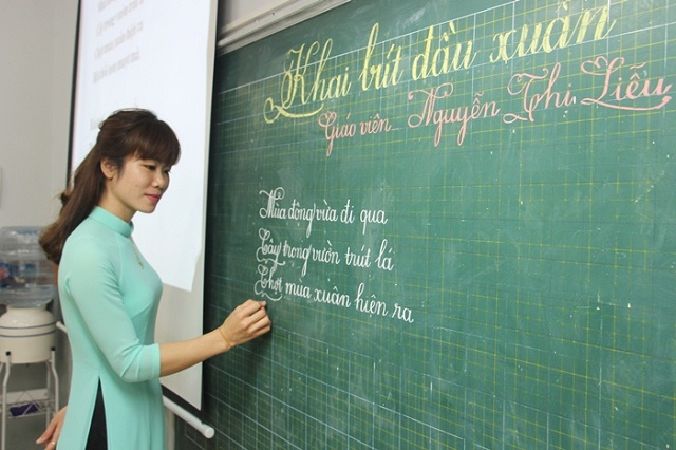 Khai bút đầu xuân
Giáo viên Nguyễn Thị Liễu
Mùa đông vừa đi qua
Cây trong vườn trút lá
Chợt mùa xuân hiện ra